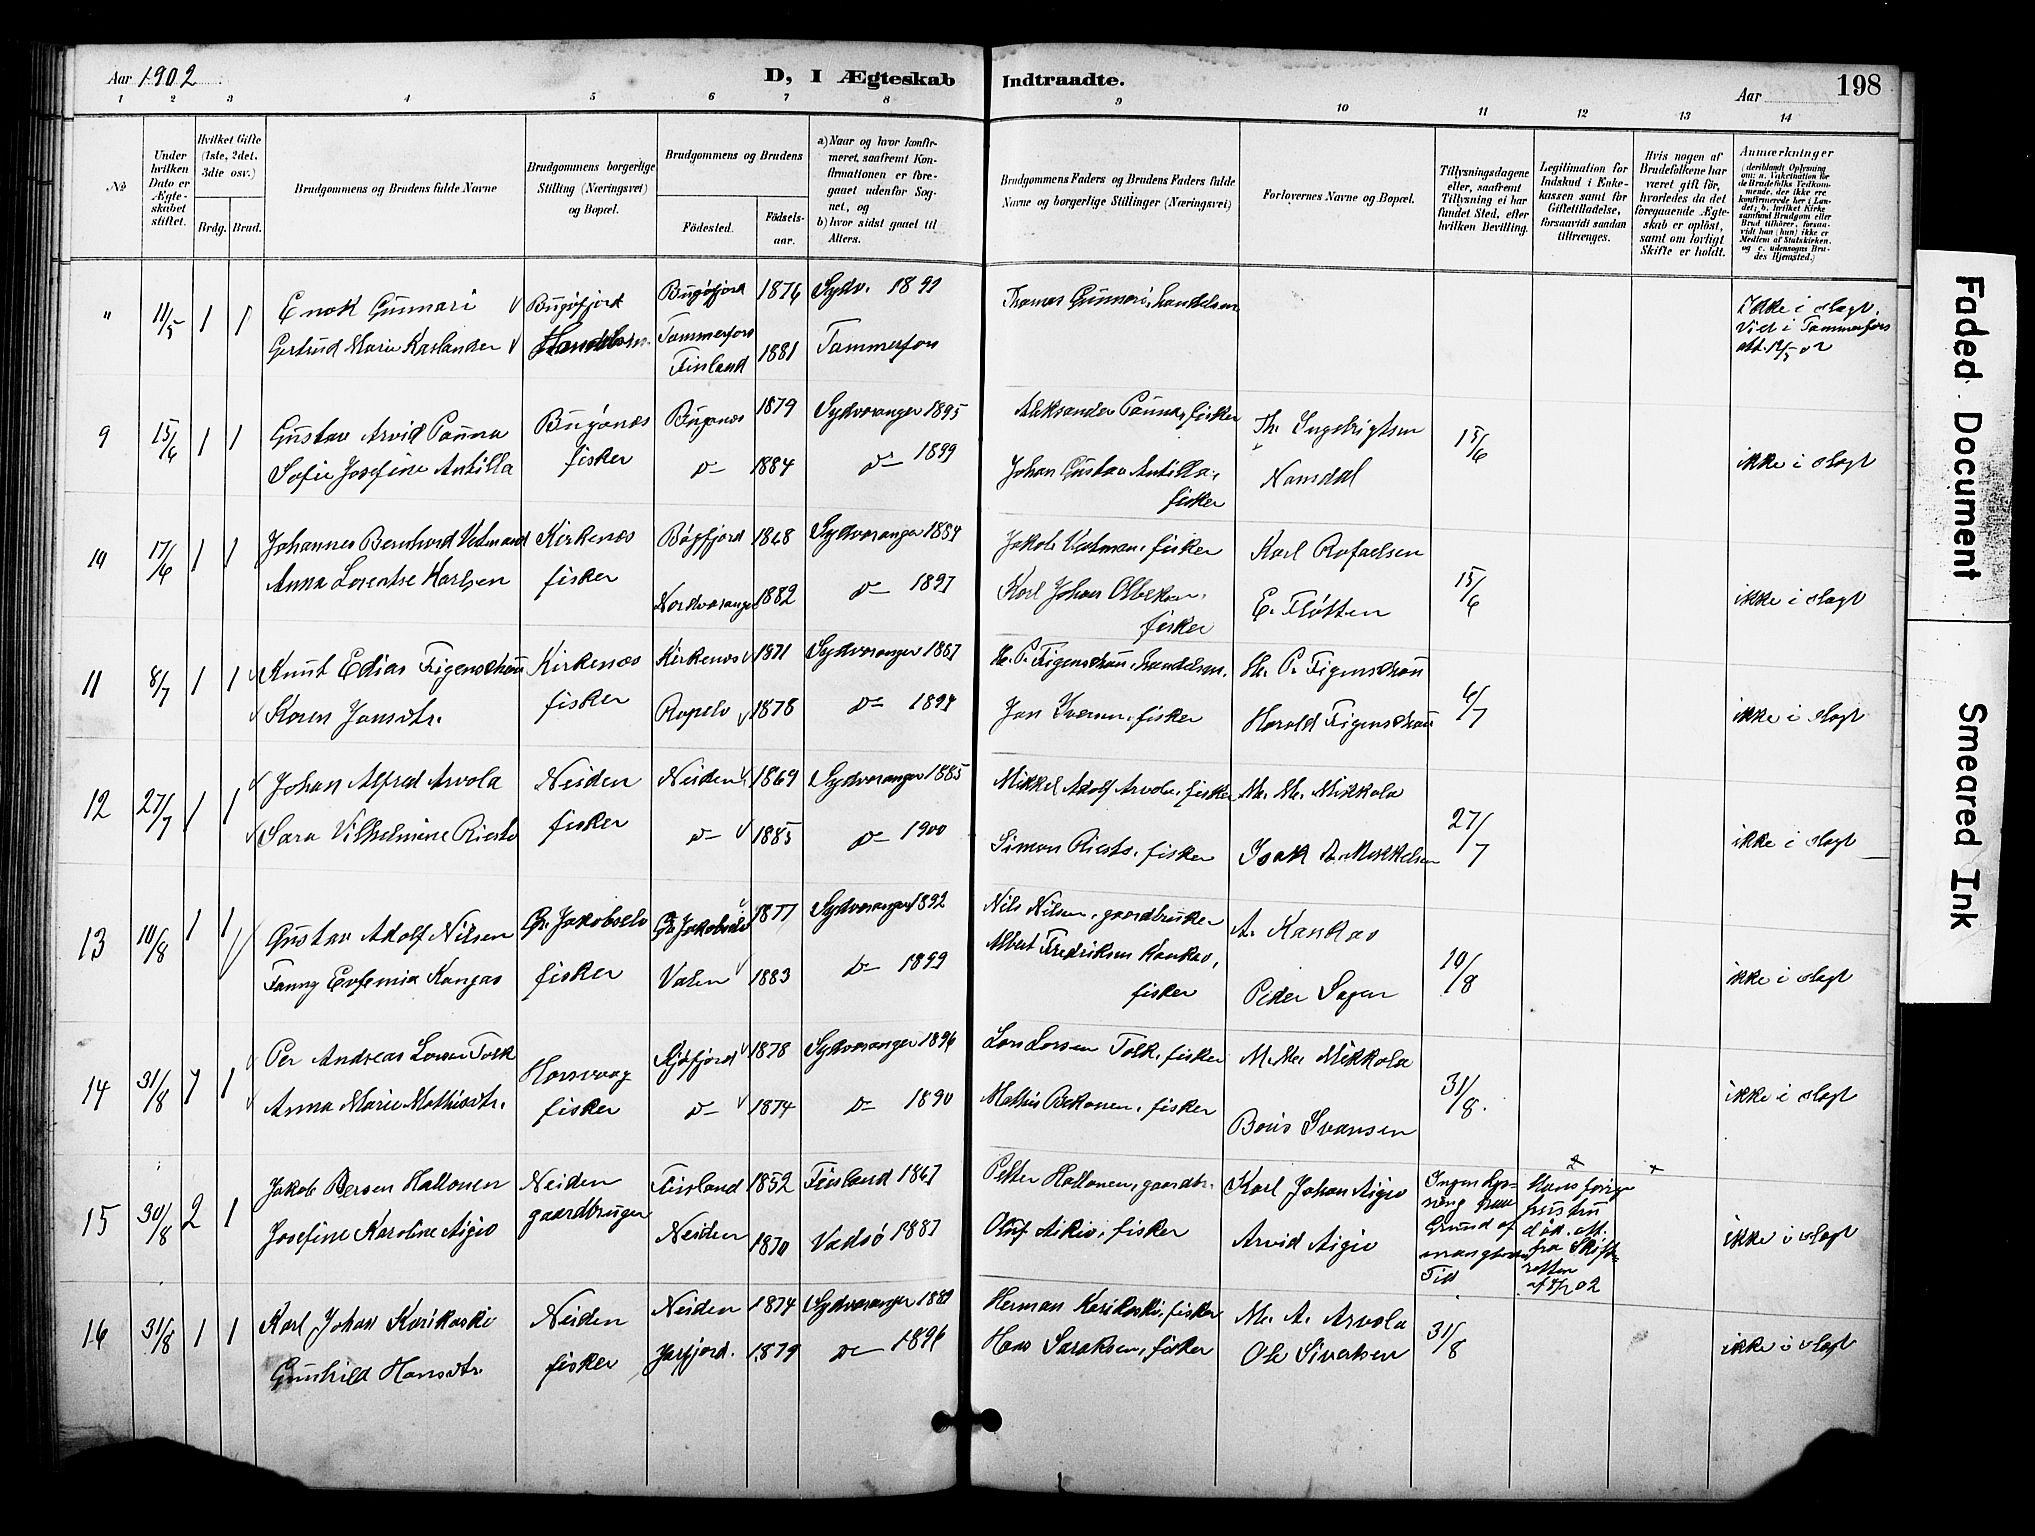 Aar 1902
D, I Ægteskab Indtraadte.
Aar
198
1 2 3 4 5 6 7 8 9 10 11 12 13 14
No
Under hvilken Dato er Ægteskabet stiftet.
Hvilket Gifte (1ste, 2det, 3die osv.)
Brdg. Brud.
Brudgommens og Brudens fulde Navne
Brudgommens borgerlige Stilling (Næringsvei) og Bopæl.
Brudgommens og Brudens
Fødested.
Fødselsaar.
a) Naar og hvor konfirmeret, saafremt Konfirmationen er foregaaet udenfor Sognet, og
b) hvor sidst gaaet til Alters.
Brudgommens Faders og Brudens Faders fulde Navne og borgerlige Stillinger (Næringsvei)
Forlovernes Navne og Bopæl.
Tillysningsdagene eller, saafremt Tillysning ei har fundet Sted, efter hvilken Bevilling.
Legitimation for Indskud i Enkekassen samt for Giftetilladelse, forsaavidt saadan tiltrænges.
Hvis nogen af Brudefolkene har været gift før, hvorledes da det foregaaende Ægteskab er opløst, samt om lovligt Skifte er holdt.
Anmærkninger
(deriblandt Oplysning om: a. Vakcination for de Brudefolks Vedkommende, der ikke ere konfirmerede her i Landet; b. hvilket Kirkesamfund Brudgom eller Brud tilhører, forsaavidt han (hun) ikke er Medlem af Statskirken. og c. udensogns Brudes Hjemsted.)
" 11/5 1 1 Enok Gunnari Bugøfjord Bugøfjord 1876 Sydv. 1891 Thomas Gunnari, handelsm. Ikke i slægt.
Gertrud Marie Kaslander Handelsm. Tammerfors Finland 1881 Tammerfors Viet i Tammerfors
att. 12/5 02
9 15/6 1 1 Gustav Arvid Pauna Bugønes Bugønes 1879 Sydvaranger 1895 Aleksander Pauna, fisker Th. Ingebrigtsen 15/6
Sofie Josefine Antilla fisker d- 1884 d- 1899 Johan Gustav Antilla, fisker Namsdal ikke i slægt
10 17/6 1 1 Johannes Bernhard Vestmand Kirkenæs Bøgfjord 1868 Sydvaranger 1884 Jakob Vestman, fisker Karl Rafaelsen 15/6
Anna Lorentse Karlsen fisker Nordvaranger 1882 d- 1897 Karl Johan fisker E. Fløtten ikke i slægt
11 8/7 1 1 Knut Edias Figenschau Kirkenæs Kirkenæs 1871 Sydvaranger 1887 H. P. Figenschau, handelsm. H. P. Figenschau 6/7
Karen Jansdtr. fisker Ropelv 1878 d- 1894 Jan Iversen, fisker Harald Figenschau ikke i slægt
12 27/7 1 1 Johan Alfred Arvola Neiden Neiden 1869 Sydvaranger 1885 Mikkel Adolf Arvola, fisker M. M. Mikkola 27/7
Sara Vilhelmine Riesto fisker d- 1885 d- 1900 Simon Riesto, fisker Isak A. Mikkelsen ikke i slægt
13 10/8 1 1 Gustav Adolf Nilsen Gr. Jakobselv Gr. Jakobselv 1877 Sydvaranger 1892 Nils Nilsen, gaardbruker A. Kankas 10/8
Fanny Eufemia Kangas fisker Valen 1883 d- 1899 Albert Fredriksen Kankas, fisker Peder Sagen ikke i slægt
14 31/8 1 1 Per Andreas Larsen Tolk Kjøfjord 1878 Sydvaranger 1896 Lars Larsen Tolk, fisker M. M. Mikkola 31/8.
Anna Marie Mathisdtr. fisker d- 1874 d- 1890 Mathis fisker Boris Ivansen ikke i slægt
15 30/8 2 1 Jakob Hallonen Neiden Finland 1852 Finland 1867 Petter Hallonen, gaardbr. Karl Johan Aigio Ingen Lysning paa Grund af mangl. Tid Hans forrige hustru død. Att. fra Skifteretten
Josefine Karoline Aigio gaardbruger Neiden 1870 Vadsø 1887 Oluf Aikio, fisker Arvid Aigio ikke i slægt
16 31/8 1 1 Karl Johan Karikoski Neiden Neiden 1874 Sydvaranger 1889 Herman Karikoski, fisker M. A. Arvola 31/8
Gunhild Hansdtr. fisker Jarfjord. 1879 d- 1896 Hans fisker Ole Sivertsen ikke i slægt
Faded Document
Smeared Ink